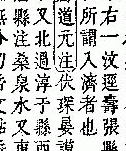 右一汶逕壽張縣
所謂入濟者也
道元注伏琛晏謨
又北過淳于縣西
縣注桑泉水又東